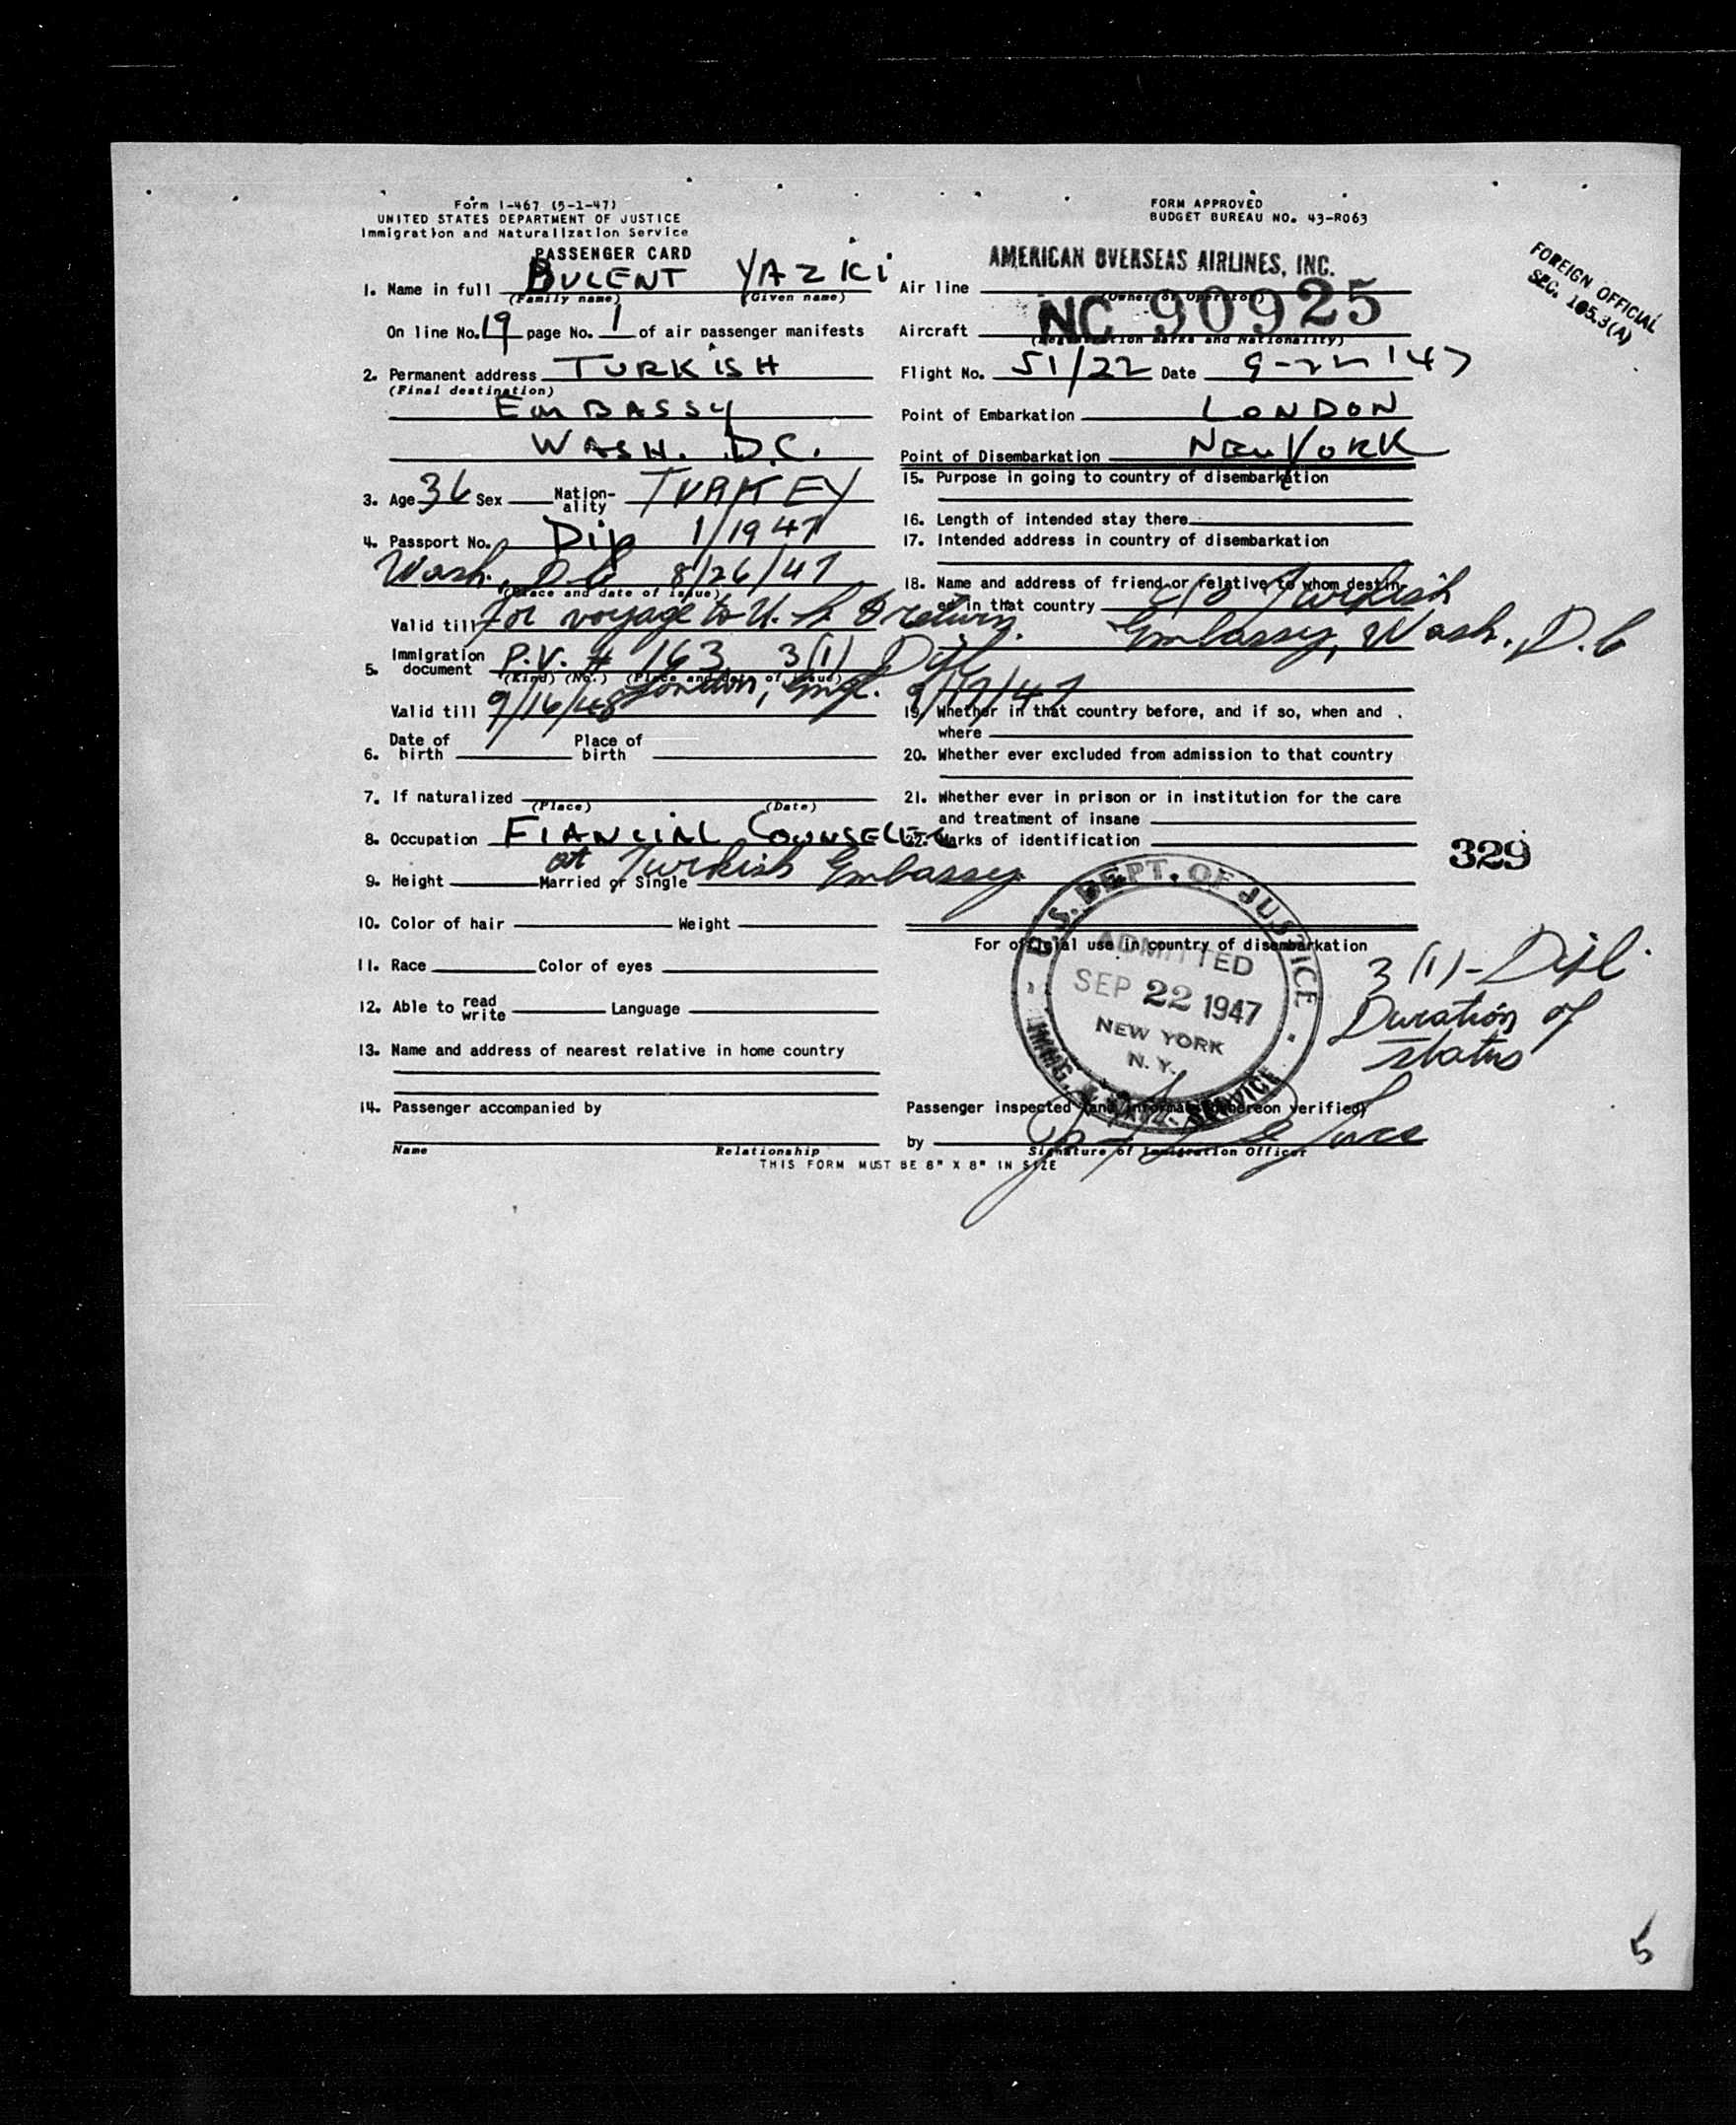 Form I-467 (5-1-47)
UNITED STATES DEPARTMENT OF JUSTICE
Immigration and Naturalization Service
PASSENGER CARD
FORM APPROVED
BUDGET BUREAU NO. 43-R063
FOREIGN OFFICIAL
SEC. 105.3(A)
1. Name in full BULENT YAZKI
(Family name) (Given name)
On line No. 19 page No. 1 of air passenger manifests
2. Permanent address TURKISH
(Final destination)
EMBASSY
WASH. D.C.
3. Age 36 Sex Nationality TURKEY
4. Passport No. Dip 1/1947
Wash., D.C 8/26/47
(Place and date of issue)
Valid till for voyage to U.S. & return.
5. Immigration document P.V. # 163 3(1) Dipl
(Kind) (No.) (Place and date of issue)
London, Engl. 9/17/47
Valid till 9/16/48
6. Date of birth Place of birth
7. If naturalized
(Place) (Date)
8. Occupation FIANCIAL COUNSELER
at Turkish Embassy
9. Height Married or Single
10. Color of hair Weight
11. Race Color of eyes
12. Able to read write Language
13. Name and address of nearest relative in home country
14. Passenger accompanied by
Name Relationship
AMERICAN OVERSEAS AIRLINES, INC.
Air line
(Owner or Operator)
Aircraft NC 90925
(Registration marks and Nationality)
Flight No. 51/22 Date 9-22 '47
Point of Embarkation LONDON
Point of Disembarkation NEW YORK
15. Purpose in going to country of disembarkation
16. Length of intended stay there
17. Intended address in country of disembarkation
18. Name and address of friend or relative to whom destin-
ed in that country c/o Turkish
Embassy, Wash. D.C
19. Whether in that country before, and if so, when and
where
20. Whether ever excluded from admission to that country
21. Whether ever in prison or in institution for the care
and treatment of insane
22. Marks of identification
329
For official use in country of disembarkation
U.S. DEPT. OF JUSTICE
ADMITTED
SEP 22 1947
NEW YORK
N.Y.
IMMIG. & NATZ. SERVICE
3(1)-Dipl.
Duration of
status
Passenger inspected (and information hereon verified)
by
Signature of Immigration Officer
THIS FORM MUST BE 8" X 8" IN SIZE
5